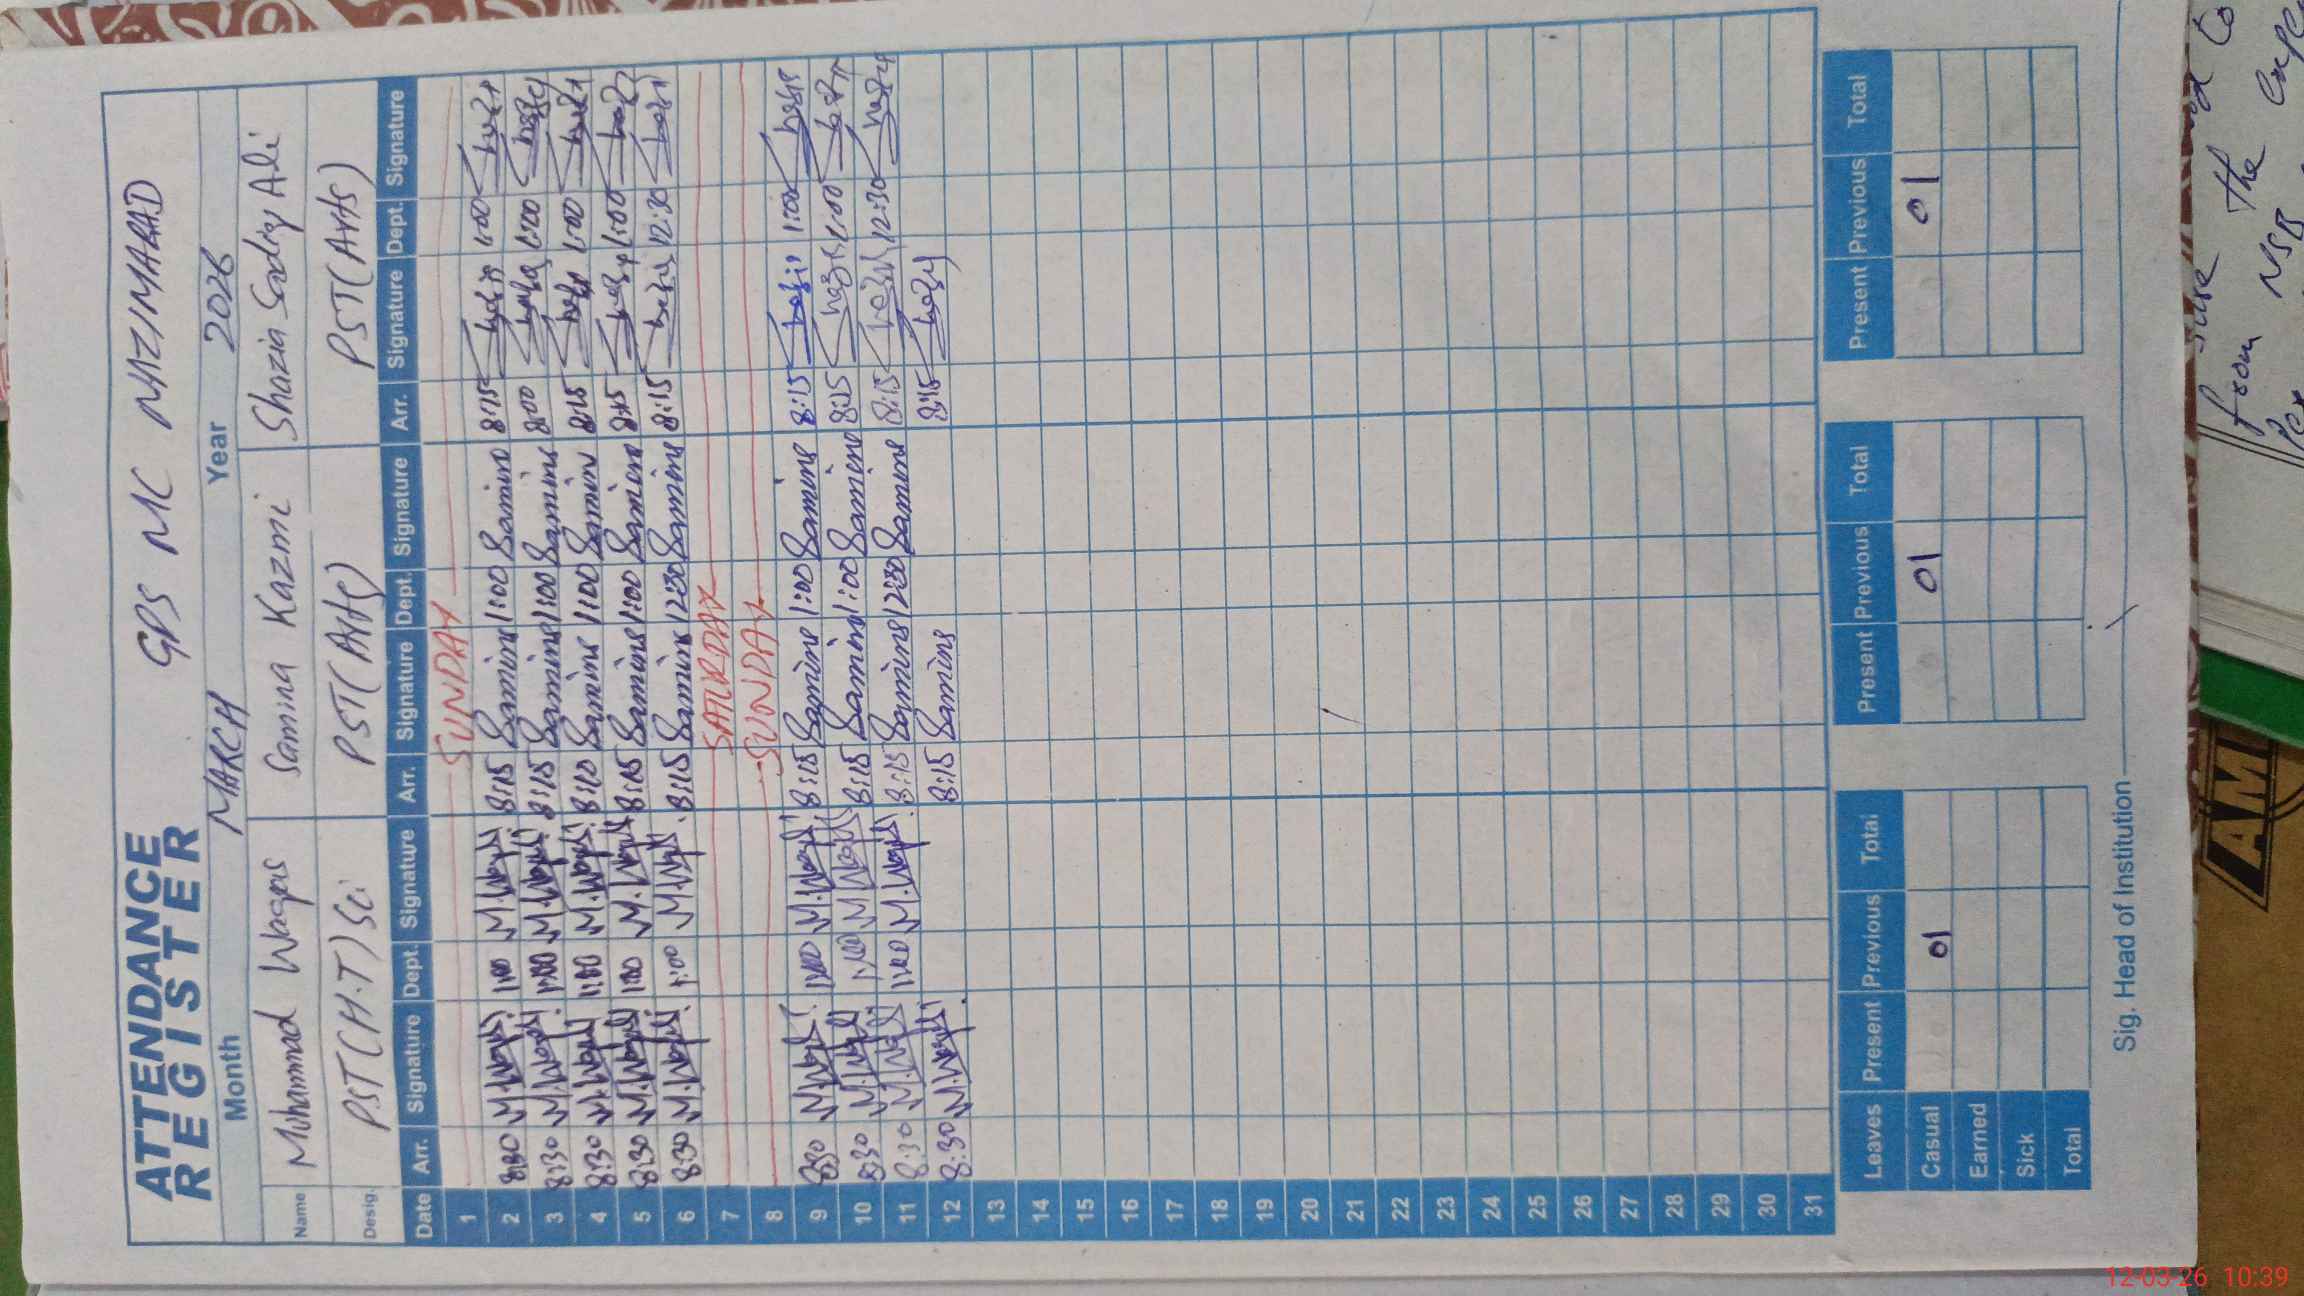 GPS MC NAZIMABAD
ATTENDANCE
REGISTER
Month MARCH Year 2026
Name Muhammad Waqas Samina Kazmi Shazia Sadiq Ali
Desig. PST(H.T)Sci PST(Arts) PST(Arts)
Date Arr. Signature Dept. Signature Arr. Signature Dept. Signature Arr. Signature Dept. Signature
1 SUNDAY
2 8:30 M.Waqas 1:00 M.Waqas 8:15 Samina 1:00 Samina 8:15 1:00
3 8:30 M.Waqas 1:00 M.Waqas 8:15 Samina 1:00 Samina 8:00 1:00
4 8:30 M.Waqas 1:00 M.Waqas 8:10 Samina 1:00 Samina 8:15 1:00
5 8:30 M.Waqas 1:00 M.Waqas 8:15 Samina 1:00 Samina 8:15 1:00
6 8:30 M.Waqas 1:00 M.Waqas 8:15 Samina 12:30 Samina 8:15 12:30
7 SATURDAY
8 SUNDAY
9 8:30 M.Waqas 1:00 M.Waqas 8:15 Samina 1:00 Samina 8:15 1:00
10 8:30 M.Waqas 1:00 M.Waqas 8:15 Samina 1:00 Samina 8:15 1:00
11 8:30 M.Waqas 1:00 M.Waqas 8:15 Samina 12:30 Samina 8:15 12:30
12 8:30 M.Waqas 8:15 Samina 8:15
13
14
15
16
17
18
19
20
21
22
23
24
25
26
27
28
29
30
31
Leaves Present Previous Total Present Previous Total Present Previous Total
Casual 01 01 01
Earned
Sick
Total
Sig. Head of Institution
from NSB
the
AM
12-03-26 10:39